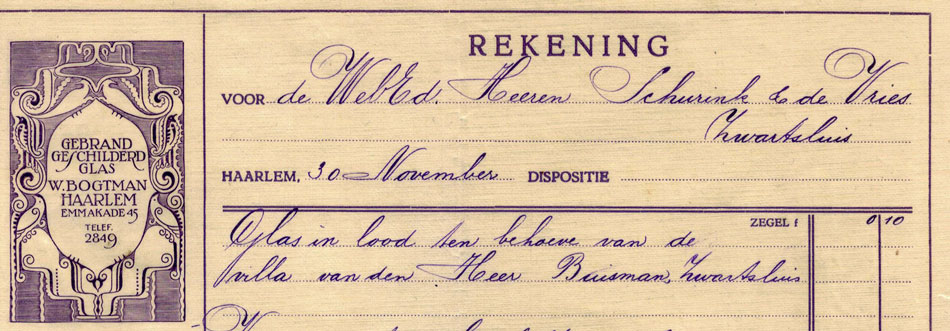 GEBRAND
GESCHILDERD
GLAS
W. BOGTMAN
HAARLEM
EMMAKADE 45
TELEF.
2849
REKENING
VOOR de WelEd. Heeren Schurink & de Vries
Zwartsluis
HAARLEM, 30 November DISPOSITIE
ZEGEL f 0 10
Glas in lood ten behoeve van de
villa van den Heer Buisman, Zwartsluis